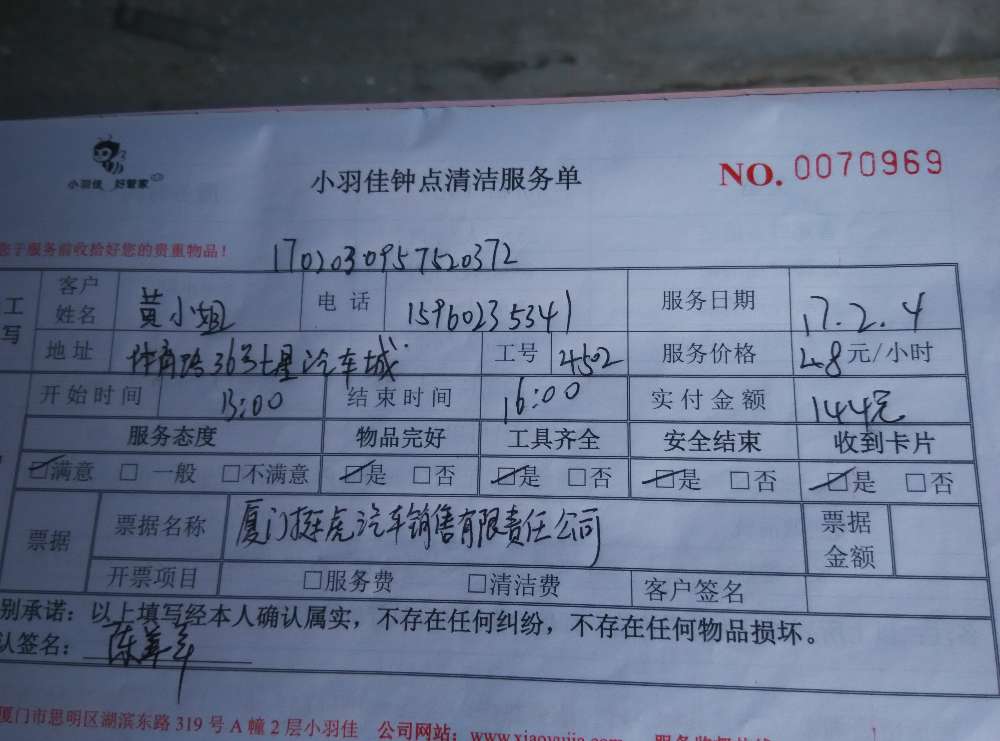 小羽佳 好管家
小羽佳钟点清洁服务单
NO. 0070969
您于服务前收拾好您的贵重物品！
1702030957520372
工 写 客户姓名 黄小姐 电话 15960235341 服务日期 17.2.4
地址 体育路36号七星汽车城 工号 4502 服务价格 48元/小时
开始时间 13:00 结束时间 16:00 实付金额 144元
服务态度 物品完好 工具齐全 安全结束 收到卡片
☑满意 □一般 □不满意 ☑是 □否 ☑是 □否 ☑是 □否 ☑是 □否
票据 票据名称 厦门挺虎汽车销售有限责任公司 票据金额
开票项目 □服务费 □清洁费 客户签名
别承诺：以上填写经本人确认属实，不存在任何纠纷，不存在任何物品损坏。
认签名：
厦门市思明区湖滨东路319号A幢2层小羽佳 公司网站：www.xiaoyujia.com